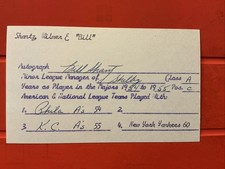 Shantz, Wilmer E "Bill"
Autograph Bill Shantz
Minor League Manager of Shelby Class A
Years as Player in the Majors 1954 to 1955 Pos C
American & National League Teams Played With:
1. Phila A's 54 2.
3. K.C A's 55 4. New York Yankees 60